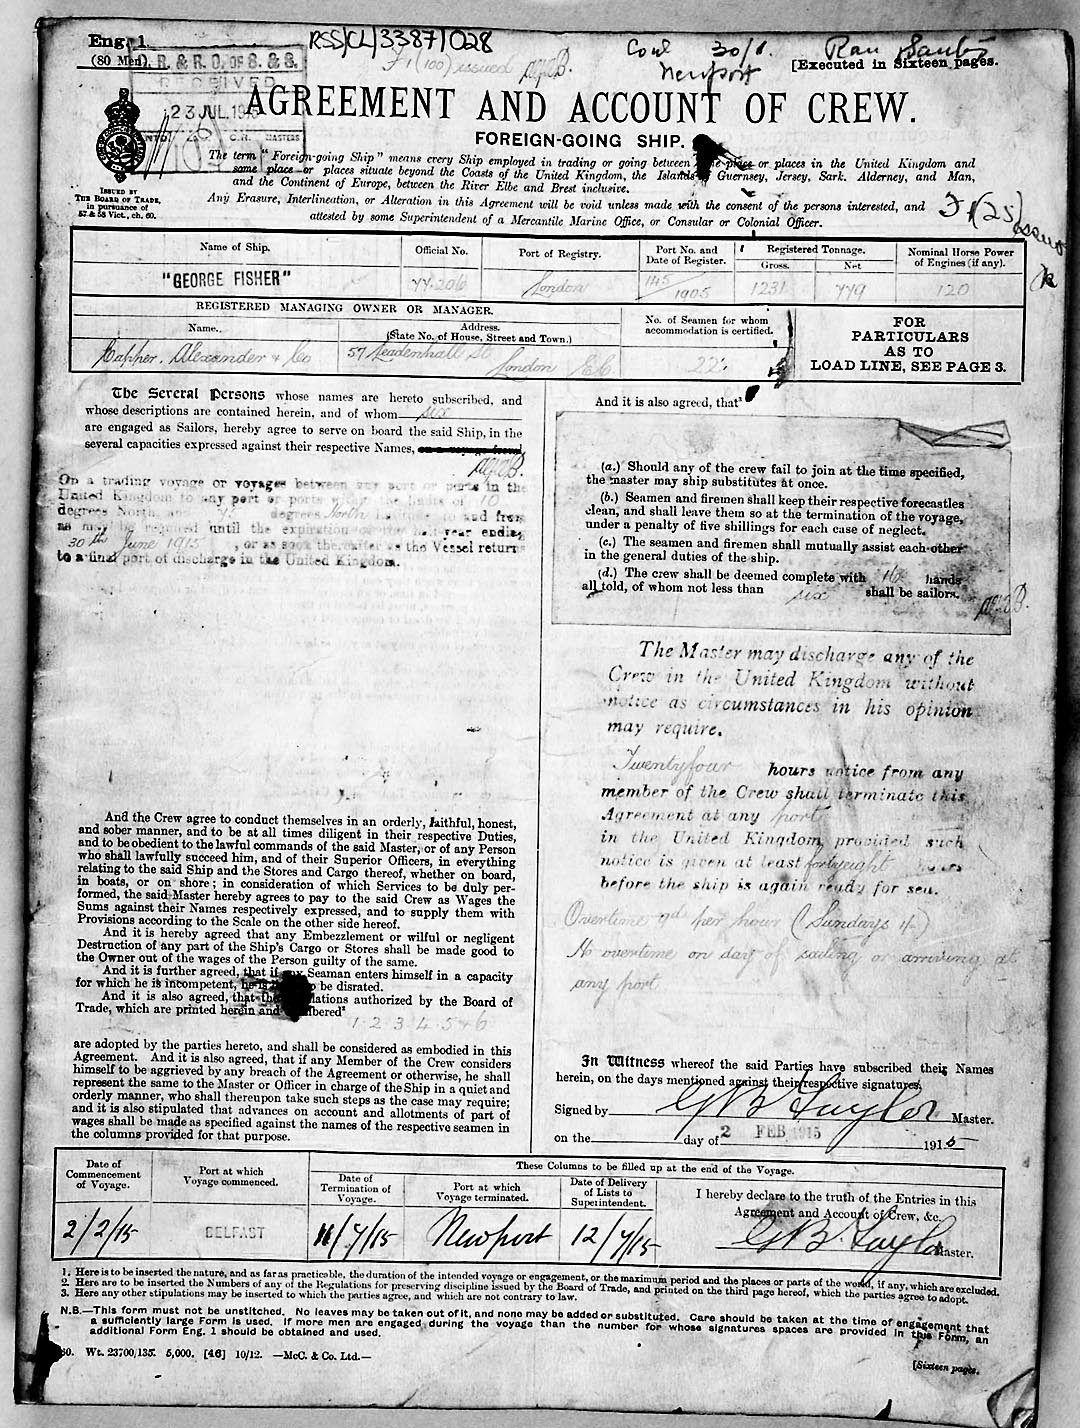 Eng. 1.
(80 Men).
RSS/CL/3387/028
F1 (100) issued
Newport
30/1.
[Executed in Sixteen pages.
R. & R. O. OF S. & S.
RECEIVED
23 JUL.
AGREEMENT AND ACCOUNT OF CREW.
FOREIGN-GOING SHIP.
ISSUED BY
THE BOARD OF TRADE,
in pursuance of
57 & 58 Vict., ch. 60.
The term "Foreign-going Ship" means every Ship employed in trading or going between some place or places in the United Kingdom and
some place or places situate beyond the Coasts of the United Kingdom, the Islands of Guernsey, Jersey, Sark, Alderney, and Man,
and the Continent of Europe, between the River Elbe and Brest inclusive.
Any Erasure, Interlineation, or Alteration in this Agreement will be void unless made with the consent of the persons interested, and
attested by some Superintendent of a Mercantile Marine Office, or Consular or Colonial Officer.
F1(25) issued
Name of Ship. Official No. Port of Registry. Port No. and Date of Register. Registered Tonnage. Gross. Net Nominal Horse Power of Engines (if any).
"GEORGE FISHER" 77.206 London 145/1905 1231 779 120
REGISTERED MANAGING OWNER OR MANAGER.
Name. Address. (State No. of House, Street and Town.) No. of Seamen for whom accommodation is certified.
Capper. Alexander & Co 57 Leadenhall St London E.C. 22.
FOR
PARTICULARS
AS TO
LOAD LINE, SEE PAGE 3.
The Several Persons whose names are hereto subscribed, and
whose descriptions are contained herein, and of whom six
are engaged as Sailors, hereby agree to serve on board the said Ship, in the
several capacities expressed against their respective Names, on a voyage from
On a trading voyage or voyages between any port or ports in the
United Kingdom to any port or ports within the limits of 10
degrees North and 75 degrees North and from
as may be required until the expiration of the half year ending
30th June 1915, or as soon thereafter as the Vessel returns
to a final port of discharge in the United Kingdom.
And the Crew agree to conduct themselves in an orderly, faithful, honest,
and sober manner, and to be at all times diligent in their respective Duties,
and to be obedient to the lawful commands of the said Master, or of any Person
who shall lawfully succeed him, and of their Superior Officers, in everything
relating to the said Ship and the Stores and Cargo thereof, whether on board,
in boats, or on shore; in consideration of which Services to be duly per-
formed, the said Master hereby agrees to pay to the said Crew as Wages the
Sums against their Names respectively expressed, and to supply them with
Provisions according to the Scale on the other side hereof.
And it is hereby agreed that any Embezzlement or wilful or negligent
Destruction of any part of the Ship's Cargo or Stores shall be made good to
the Owner out of the wages of the Person guilty of the same.
And it is further agreed, that if any Seaman enters himself in a capacity
for which he is incompetent, he is to be disrated.
And it is also agreed, that the Regulations authorized by the Board of
Trade, which are printed herein and numbered²
1. 2. 3. 4. 5 & 6
are adopted by the parties hereto, and shall be considered as embodied in this
Agreement. And it is also agreed, that if any Member of the Crew considers
himself to be aggrieved by any breach of the Agreement or otherwise, he shall
represent the same to the Master or Officer in charge of the Ship in a quiet and
orderly manner, who shall thereupon take such steps as the case may require;
and it is also stipulated that advances on account and allotments of part of
wages shall be made as specified against the names of the respective seamen in
the columns provided for that purpose.
And it is also agreed, that³
(a.) Should any of the crew fail to join at the time specified,
the master may ship substitutes at once.
(b.) Seamen and firemen shall keep their respective forecastles
clean, and shall leave them so at the termination of the voyage,
under a penalty of five shillings for each case of neglect.
(c.) The seamen and firemen shall mutually assist each other
in the general duties of the ship.
(d.) The crew shall be deemed complete with 16 hands
all told, of whom not less than six shall be sailors.
The Master may discharge any of the
Crew in the United Kingdom without
notice as circumstances in his opinion
may require.
Twentyfour hours notice from any
member of the Crew shall terminate this
Agreement at any port
in the United Kingdom, provided such
notice is given at least fortyeight hours
before the ship is again ready for sea.
Overtime 9d per hour (Sundays 1/-)
No overtime on day of sailing or arriving at
any port
In Witness whereof the said Parties have subscribed their Names
herein, on the days mentioned against their respective signatures,
Signed by G B Taylor Master.
on the day of 2 FEB 1915 1915
Date of Commencement of Voyage. Port at which Voyage commenced. These Columns to be filled up at the end of the Voyage.
Date of Termination of Voyage. Port at which Voyage terminated. Date of Delivery of Lists to Superintendent.
I hereby declare to the truth of the Entries in this
Agreement and Account of Crew, &c.
2/2/15 BELFAST 11/7/15 Newport 12/7/15 G B Taylor Master.
1. Here is to be inserted the nature, and as far as practicable, the duration of the intended voyage or engagement, or the maximum period and the places or parts of the world, if any, which are excluded.
2. Here are to be inserted the Numbers of any of the Regulations for preserving discipline issued by the Board of Trade, and printed on the third page hereof, which the parties agree to adopt.
3. Here any other stipulations may be inserted to which the parties agree, and which are not contrary to law.
N.B.—This form must not be unstitched. No leaves may be taken out of it, and none may be added or substituted. Care should be taken at the time of engagement that
a sufficiently large Form is used. If more men are engaged during the voyage than the number for whose signatures spaces are provided in this Form, an
additional Form Eng. 1 should be obtained and used.
60. Wt. 23700/135. 5,000. [46] 10/12. —McC. & Co. Ltd.—
[Sixteen pages.